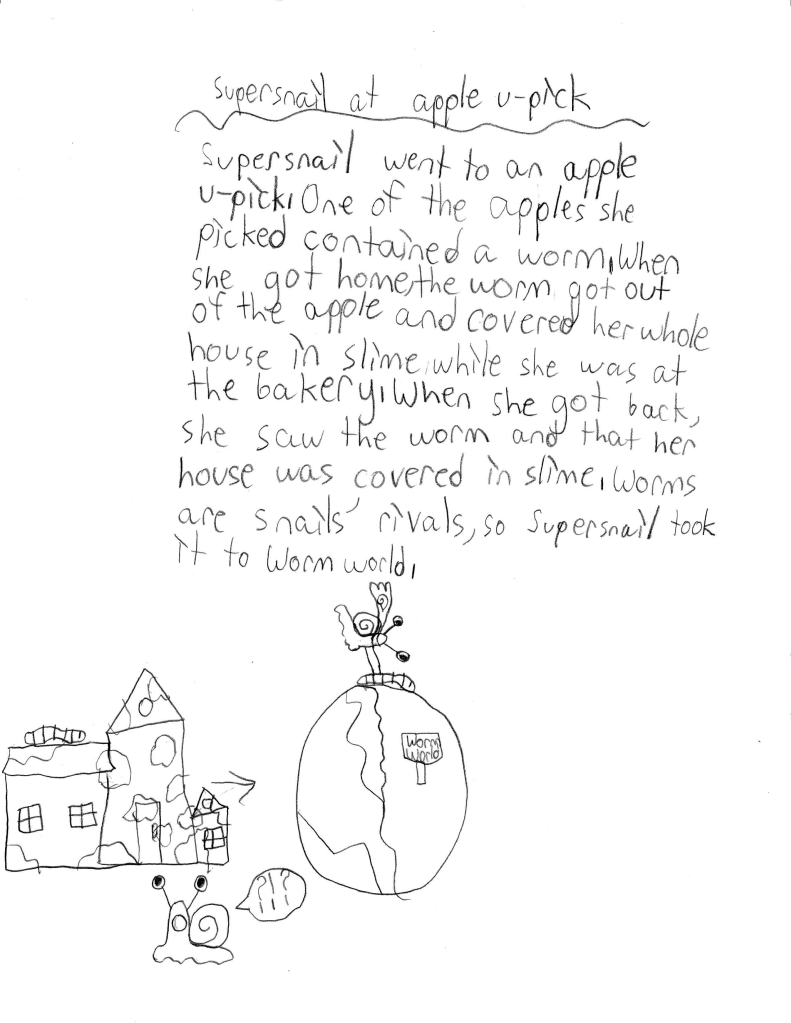 Supersnail at apple u-pick
Supersnail went to an apple
u-pick. One of the apples she
picked contained a worm. When
she got home, the worm got out
of the apple and covered her whole
house in slime while she was at
the bakery. When she got back,
she saw the worm and that her
house was covered in slime. Worms
are snails' rivals, so Supersnail took
it to Worm world.
Worm
World
?!?